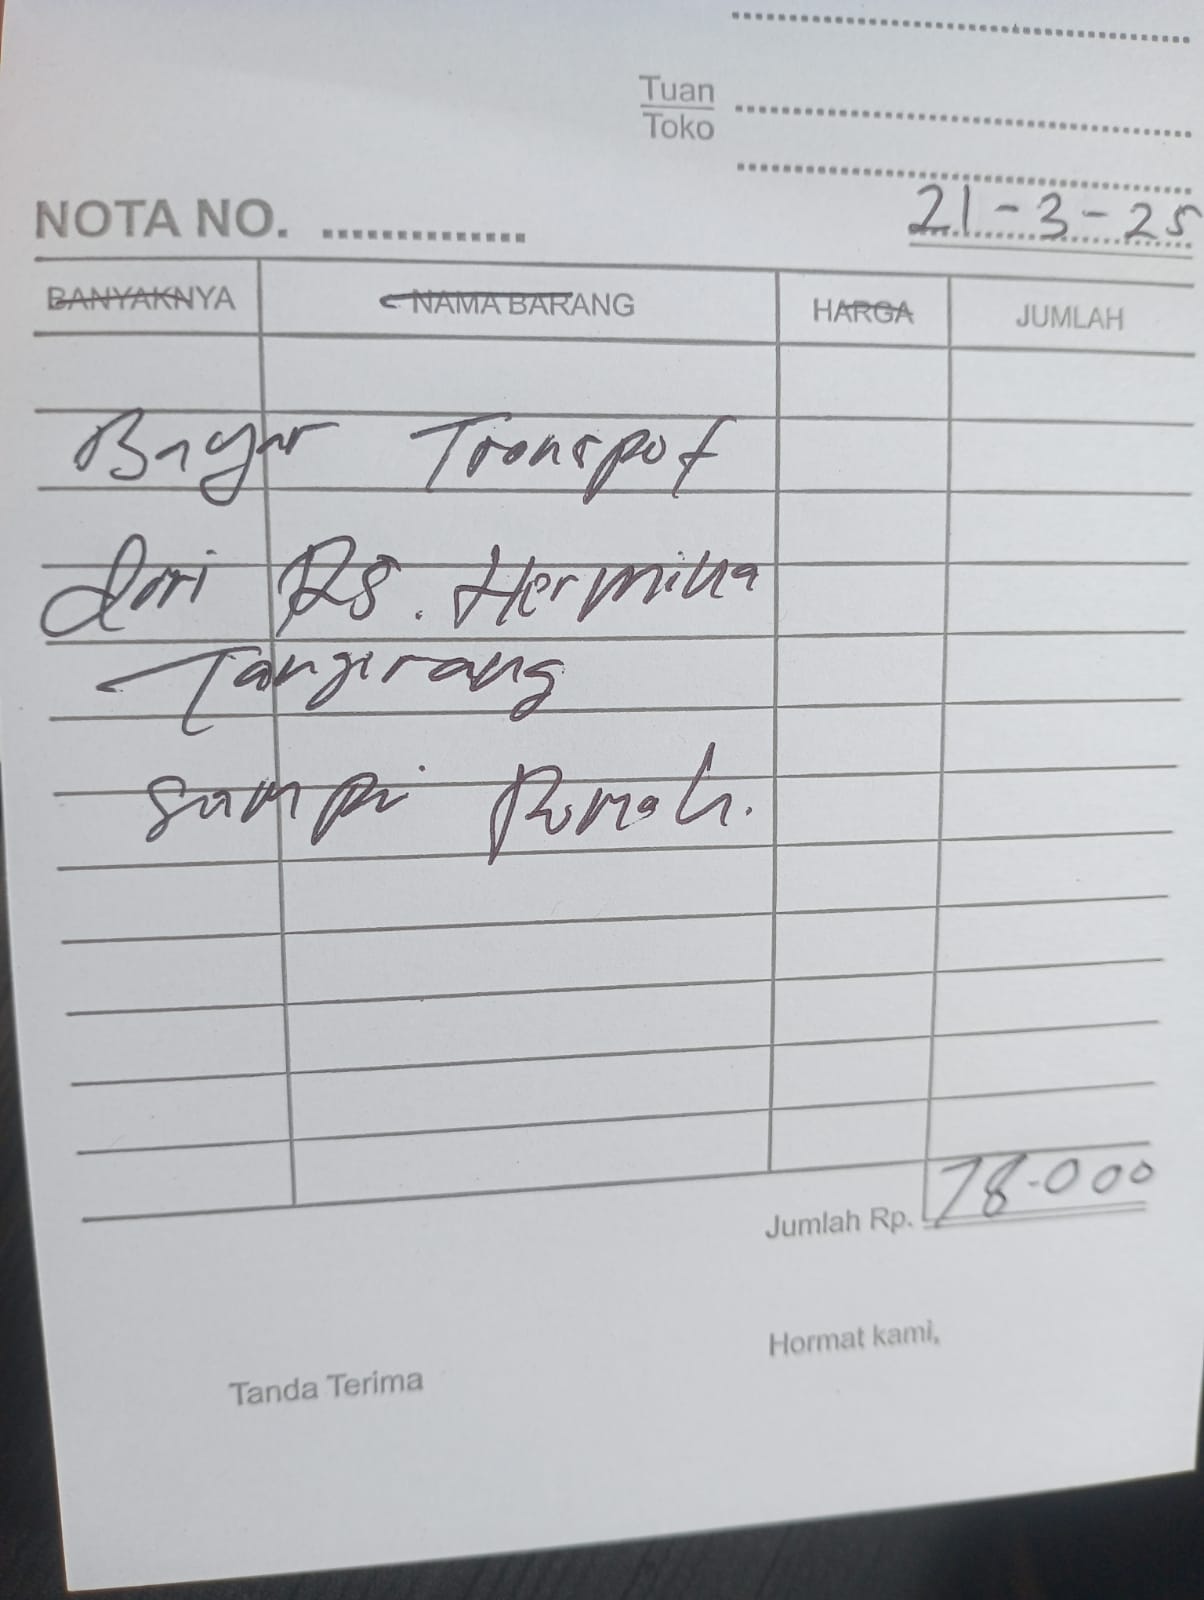 Tuan
Toko
NOTA NO.
21-3-25
BANYAKNYA NAMA BARANG HARGA JUMLAH
Bayar Transpot
dari RS. Hermina
Tangerang
sampi Rumah.
Jumlah Rp. 78.000
Hormat kami,
Tanda Terima